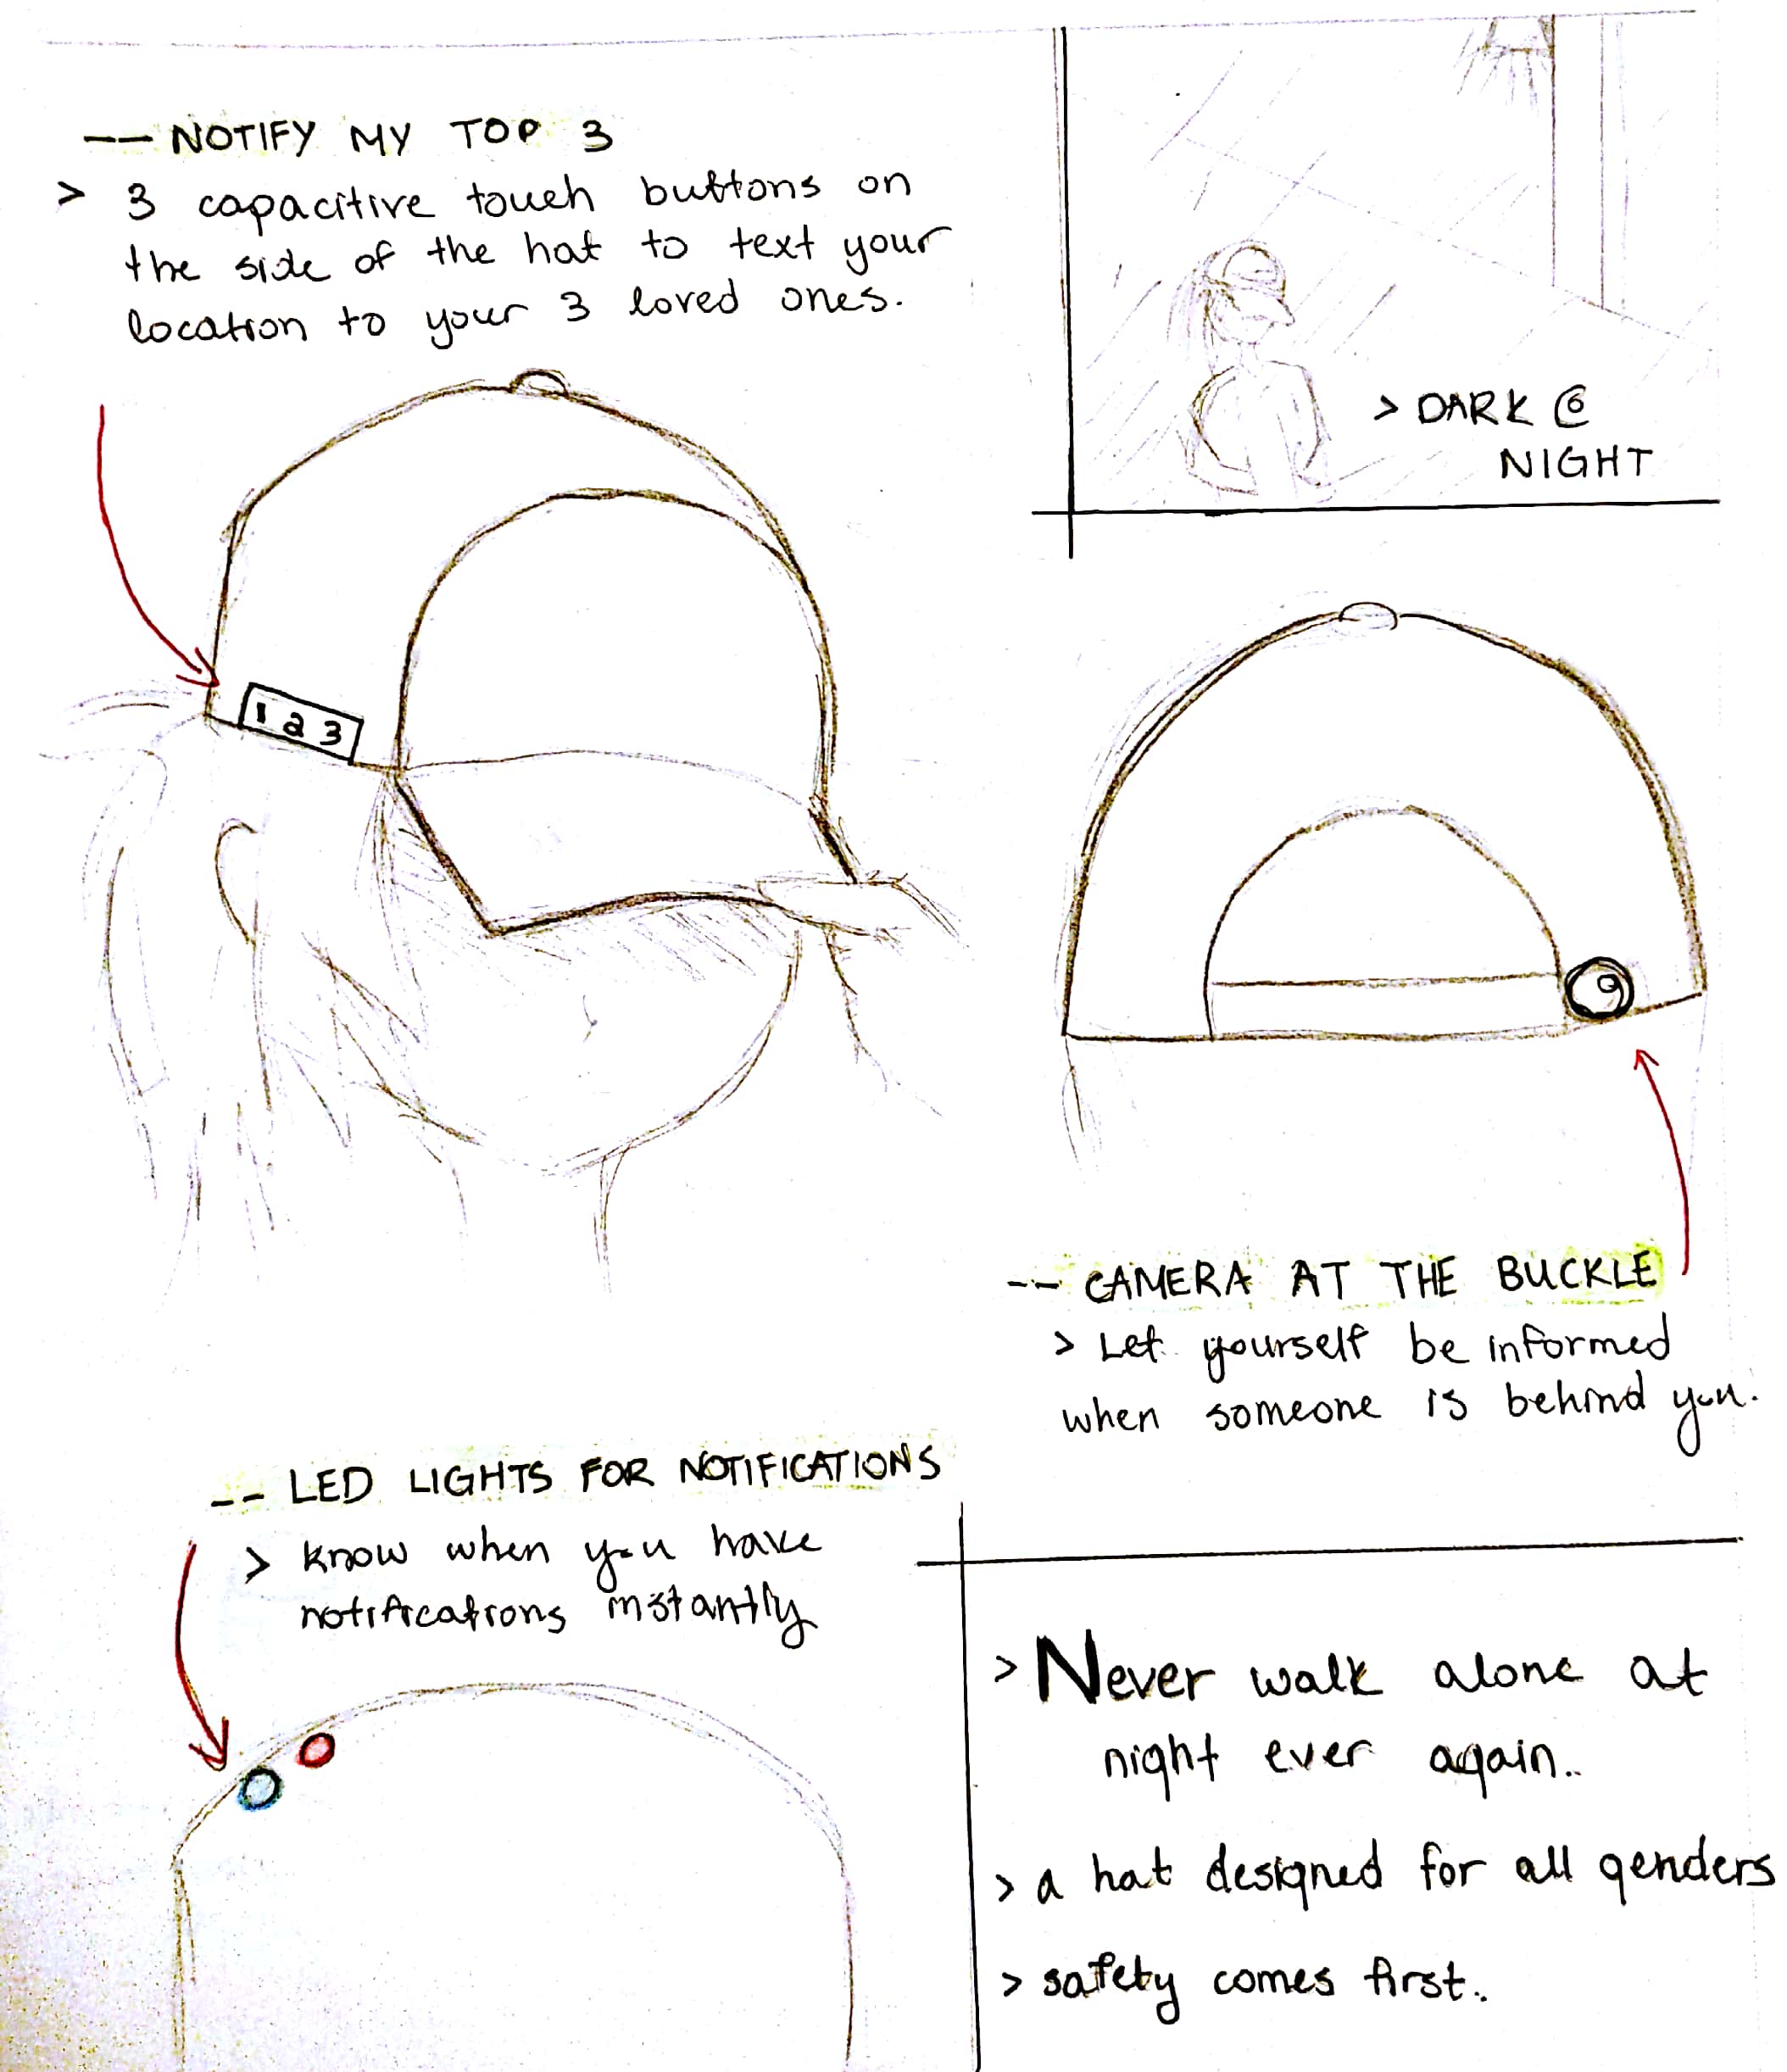 -- NOTIFY MY TOP 3
> 3 capacitive touch buttons on
the side of the hat to text your
location to your 3 loved ones.
> DARK @
NIGHT
1 2 3
-- CAMERA AT THE BUCKLE
> Let yourself be informed
when someone is behind you.
-- LED LIGHTS FOR NOTIFICATIONS
> know when you have
notifications instantly
> Never walk alone at
night ever again..
> a hat designed for all genders
> safety comes first..